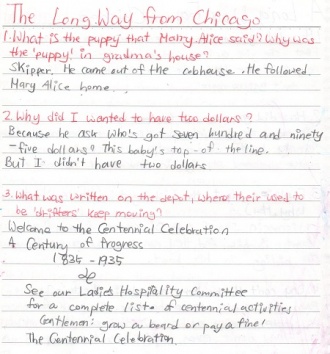 The Long Way from Chicago
1. What is the puppy that Marry Alice said? Why was
the 'puppy' in grandma's house?
Skipper. He came out of the cobhouse. He followed
Mary Alice home.
2. Why did I wanted to have two dollars?
Because he ask who's got seven hundred and ninety
-five dollars? This baby's top-of the line.
But I didn't have two dollars
3. What was written on the depot, where their used to
be 'drifters' keep moving?
Welcome to the Centennial Celebration
A Century of Progress
1835-1935
See our Ladies Hospitality Committee
for a complete list of centennial activities
Gentlemen: grow a beard or pay a fine!
The Centennial Celebration